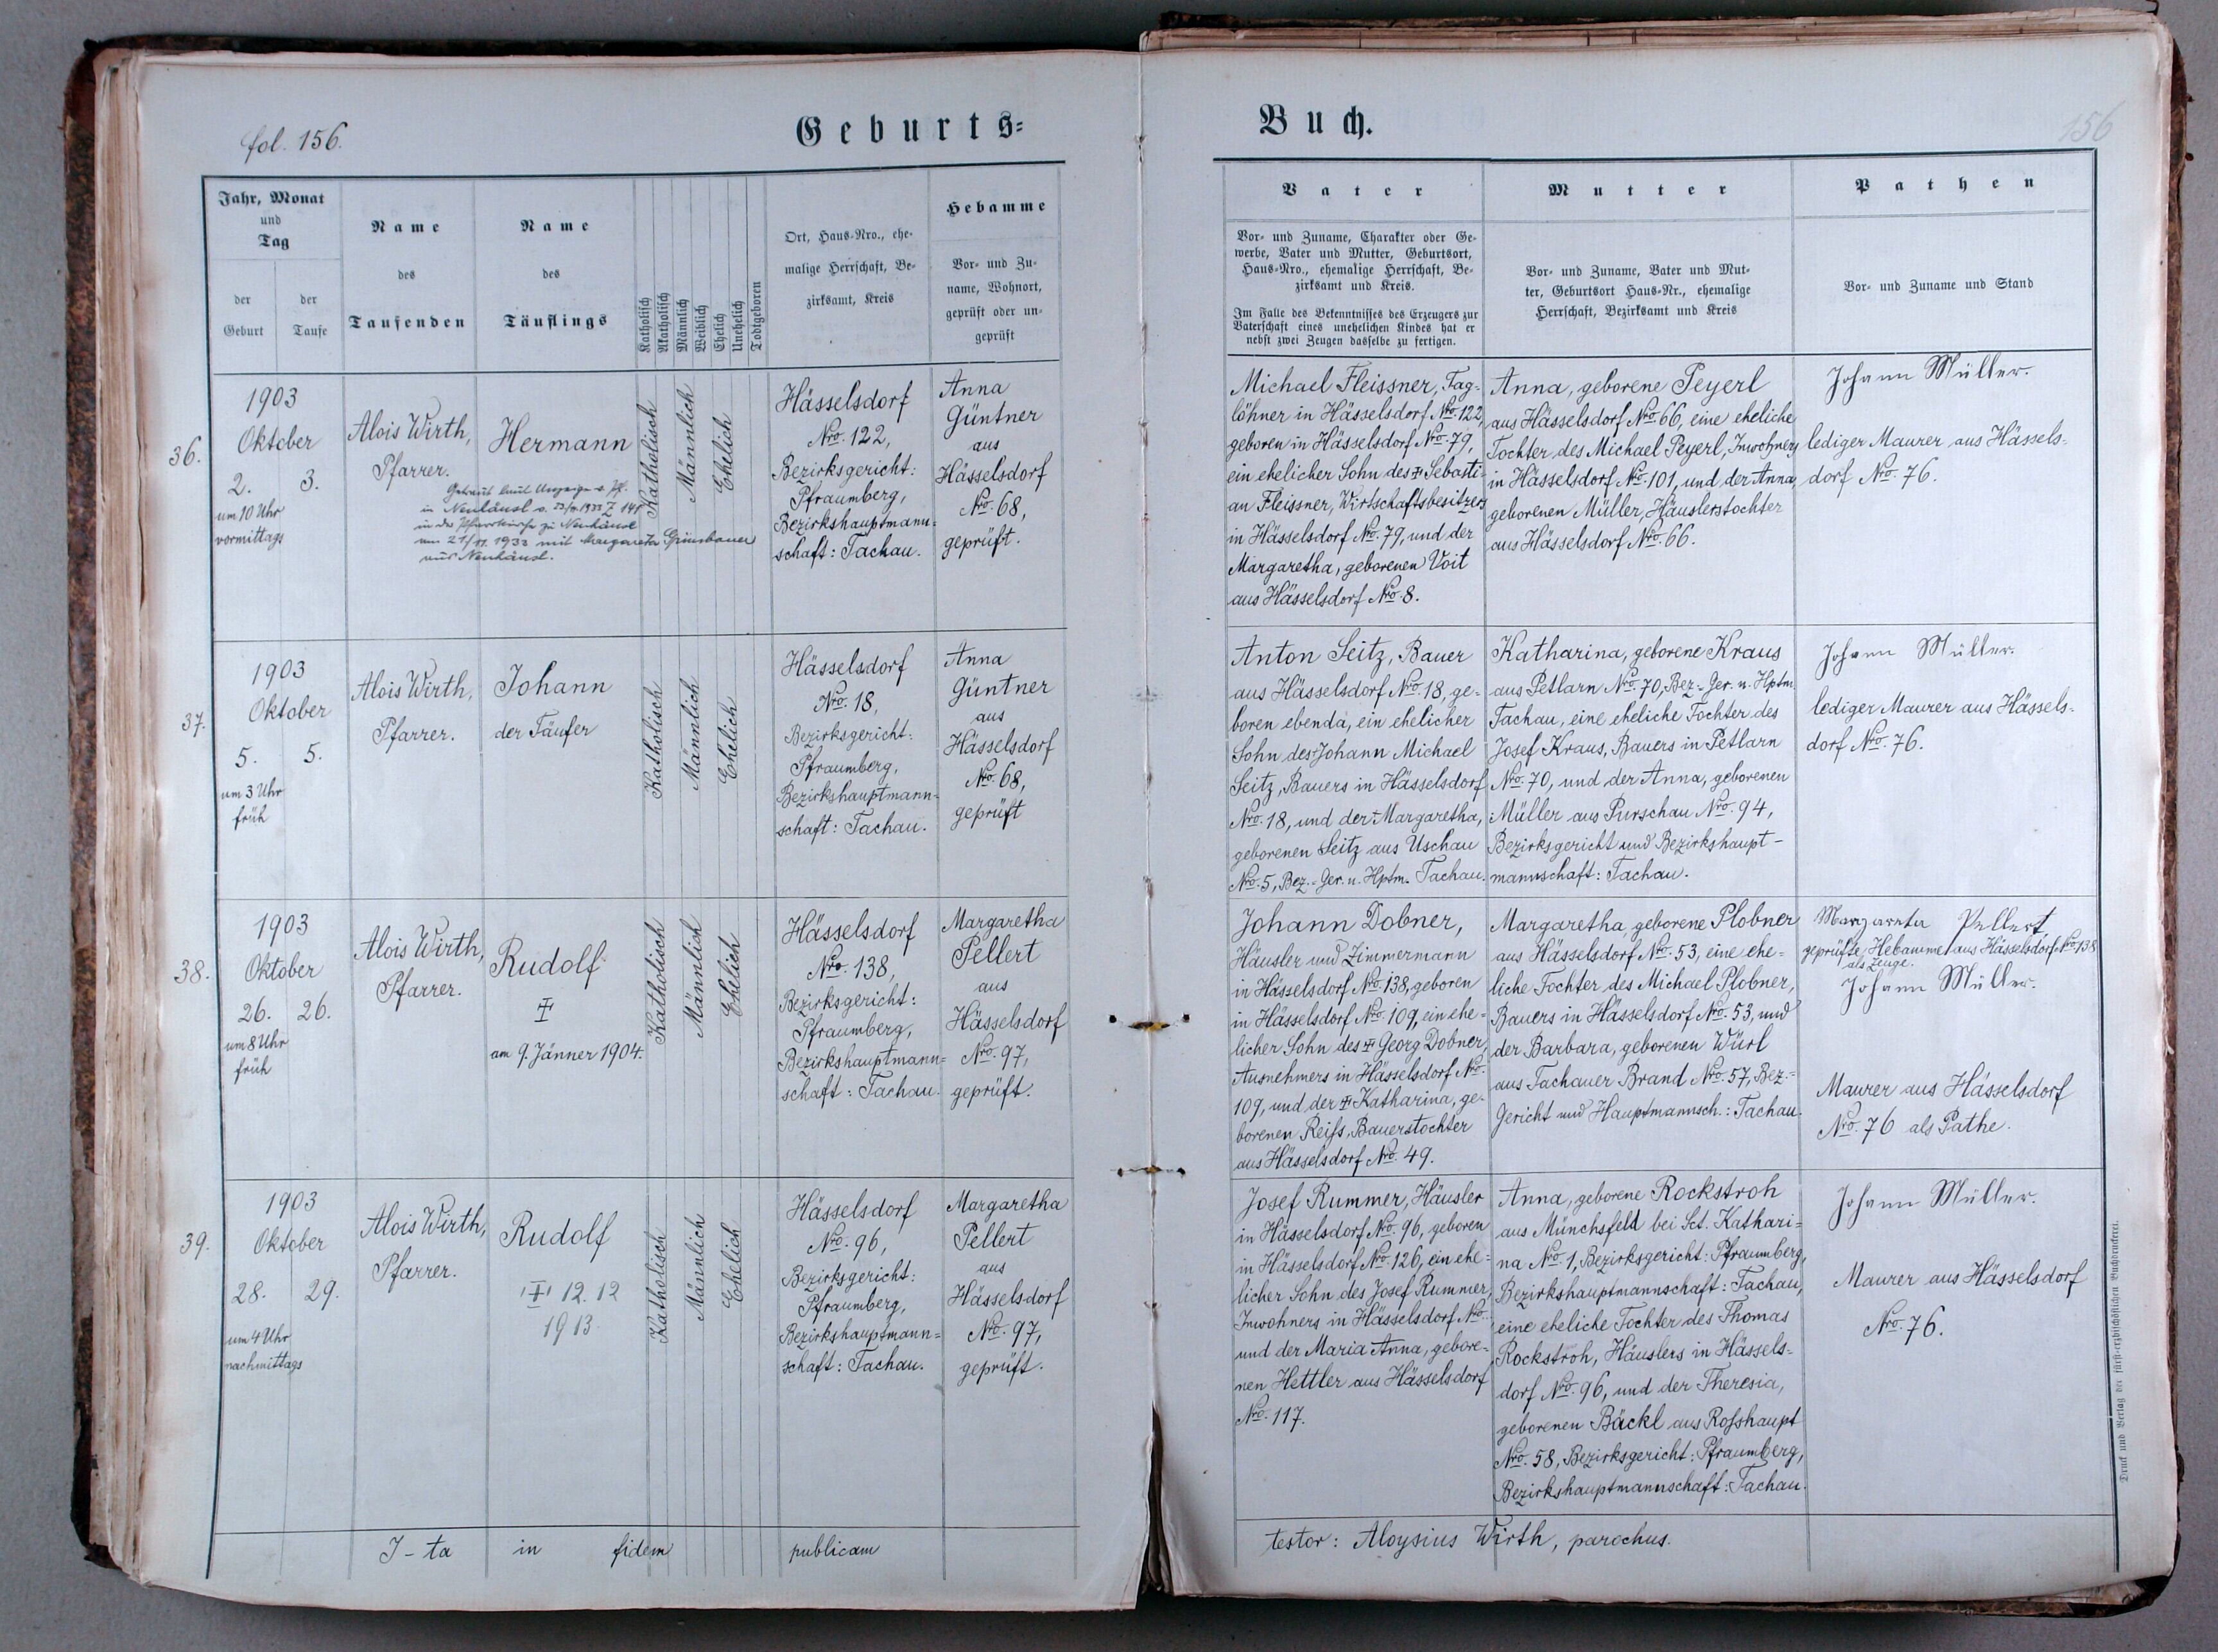 fol. 156.
Geburts=
Jahr, Monat
und
Tag
der
Geburt
der
Taufe
Name
des
Taufenden
Name
des
Täuflings
Katholisch
Akatholisch
Männlich
Weiblich
Ehelich
Unehelich
Todtgeboren
Ort, Haus-Nro., ehe-
malige Herrschaft, Be-
zirksamt, Kreis
Hebamme
Vor- und Zu-
name, Wohnort,
geprüft oder un-
geprüft
36.
1903
Oktober
2. 3.
um 10 Uhr
vormittags
Alois Wirth,
Pfarrer.
Hermann
Getraut laut Anzeige
in Neuhäusl
in der Pfarrkirche zu Neuhäusl
am 21/11. 1933 mit Margareta Grünbauer
aus Neuhäusl.
Katholisch
Männlich
Ehelich
Hässelsdorf
Nro. 122,
Bezirksgericht:
Pfraumberg,
Bezirkshauptmann=
schaft: Tachau.
Anna
Güntner
aus
Hässelsdorf
Nro. 68,
geprüft.
37.
1903
Oktober
5. 5.
um 3 Uhr
früh
Alois Wirth,
Pfarrer.
Johann
der Täufer
Katholisch
Männlich
Ehelich
Hässelsdorf
Nro. 18,
Bezirksgericht:
Pfraumberg,
Bezirkshauptmann=
schaft: Tachau.
Anna
Güntner
aus
Hässelsdorf
Nro. 68,
geprüft
38.
1903
Oktober
26. 26.
um 8 Uhr
früh
Alois Wirth,
Pfarrer.
Rudolf
‡
am 9. Jänner 1904.
Katholisch
Männlich
Ehelich
Hässelsdorf
Nro. 138,
Bezirksgericht:
Pfraumberg,
Bezirkshauptmann=
schaft: Tachau.
Margaretha
Pellert
aus
Hässelsdorf
Nro. 97,
geprüft.
39.
1903
Oktober
28. 29.
um 4 Uhr
nachmittags
Alois Wirth,
Pfarrer.
Rudolf
‡ 12. 12
1913
Katholisch
Männlich
Ehelich
Hässelsdorf
Nro. 96,
Bezirksgericht:
Pfraumberg,
Bezirkshauptmann=
schaft: Tachau.
Margaretha
Pellert
aus
Hässelsdorf
Nro. 97,
geprüft.
I-ta in fidem publicam
Buch.
156
Vater
Vor- und Zuname, Charakter oder Ge-
werbe, Vater und Mutter, Geburtsort,
Haus-Nro., ehemalige Herrschaft, Be-
zirksamt und Kreis.
Im Falle des Bekenntnisses des Erzeugers zur
Vaterschaft eines unehelichen Kindes hat er
nebst zwei Zeugen dasselbe zu fertigen.
Mutter
Vor- und Zuname, Vater und Mut-
ter, Geburtsort Haus-Nr., ehemalige
Herrschaft, Bezirksamt und Kreis
Pathen
Vor- und Zuname und Stand
Michael Fleissner, Tag-
löhner in Hässelsdorf Nro. 122,
geboren in Hässelsdorf Nro. 79,
ein ehelicher Sohn des ‡ Sebasti-
an Fleissner, Wirtschaftsbesitzers
in Hässelsdorf Nro. 79, und der
Margaretha, geborenen Voit
aus Hässelsdorf Nro. 8.
Anna, geborene Peyerl
aus Hässelsdorf Nro. 66, eine eheliche
Tochter des Michael Peyerl, Inwohners
in Hässelsdorf Nro. 101, und der Anna,
geborenen Müller, Häuslerstochter
aus Hässelsdorf Nro. 66.
Johann Müller.
lediger Maurer aus Hässels=
dorf Nro. 76.
Anton Seitz, Bauer
aus Hässelsdorf Nro. 18, ge-
boren ebenda, ein ehelicher
Sohn des Johann Michael
Seitz, Bauers in Hässelsdorf
Nro. 18, und der Margaretha,
geborenen Seitz aus Uschau
Nro. 5, Bez.-Ger. u. Hptm. Tachau.
Katharina, geborene Kraus
aus Petlarn Nro. 70, Bez.-Ger. u. Hptm.
Tachau, eine eheliche Tochter des
Josef Kraus, Bauers in Petlarn
Nro. 70, und der Anna, geborenen
Müller aus Purschau Nro. 94,
Bezirksgericht und Bezirkshaupt-
mannschaft: Tachau.
Johann Müller.
lediger Maurer aus Hässels-
dorf Nro. 76.
Johann Dobner,
Häusler und Zimmermann
in Hässelsdorf Nro. 138, geboren
in Hässelsdorf Nro. 109, ein ehe-
licher Sohn des ‡ Georg Dobner,
Ausnehmers in Hässelsdorf Nro.
109, und der ‡ Katharina, ge-
borenen Reiss, Bauerstochter
aus Hässelsdorf Nro. 49.
Margaretha, geborene Plobner
aus Hässelsdorf Nro. 53, eine ehe-
liche Tochter des Michael Plobner,
Bauers in Hässelsdorf Nro. 53, und
der Barbara, geborenen Würl
aus Tachauer Brand Nro. 57, Bez.=
Gericht und Hauptmannsch.: Tachau.
Margareta Pellert,
geprüfte Hebamme aus Hässelsdorf Nro. 138
als Zeuge.
Johann Müller.
Maurer aus Hässelsdorf
Nro. 76 als Pathe.
Josef Rummer, Häusler
in Hässelsdorf Nro. 96, geboren
in Hässelsdorf Nro. 126, ein ehe=
licher Sohn des Josef Rummer,
Inwohners in Hässelsdorf Nro.
und der Maria Anna, gebore-
nen Hettler aus Hässelsdorf
Nro. 117.
Anna, geborene Rockstroh
aus Münchsfeld bei Sct. Kathari=
na Nro. 1, Bezirksgericht: Pfraumberg,
Bezirkshauptmannschaft: Tachau,
eine eheliche Tochter des Thomas
Rockstroh, Häuslers in Hässels-
dorf Nro. 96, und der Theresia,
geborenen Bäckl aus Rosshaupt
Nro. 58, Bezirksgericht: Pfraumberg,
Bezirkshauptmannschaft: Tachau.
Johann Müller.
Maurer aus Hässelsdorf
Nro. 76.
testor: Aloysius Wirth, parochus.
Druck und Verlag der fürst-erzbischöflichen Buchdruckerei.